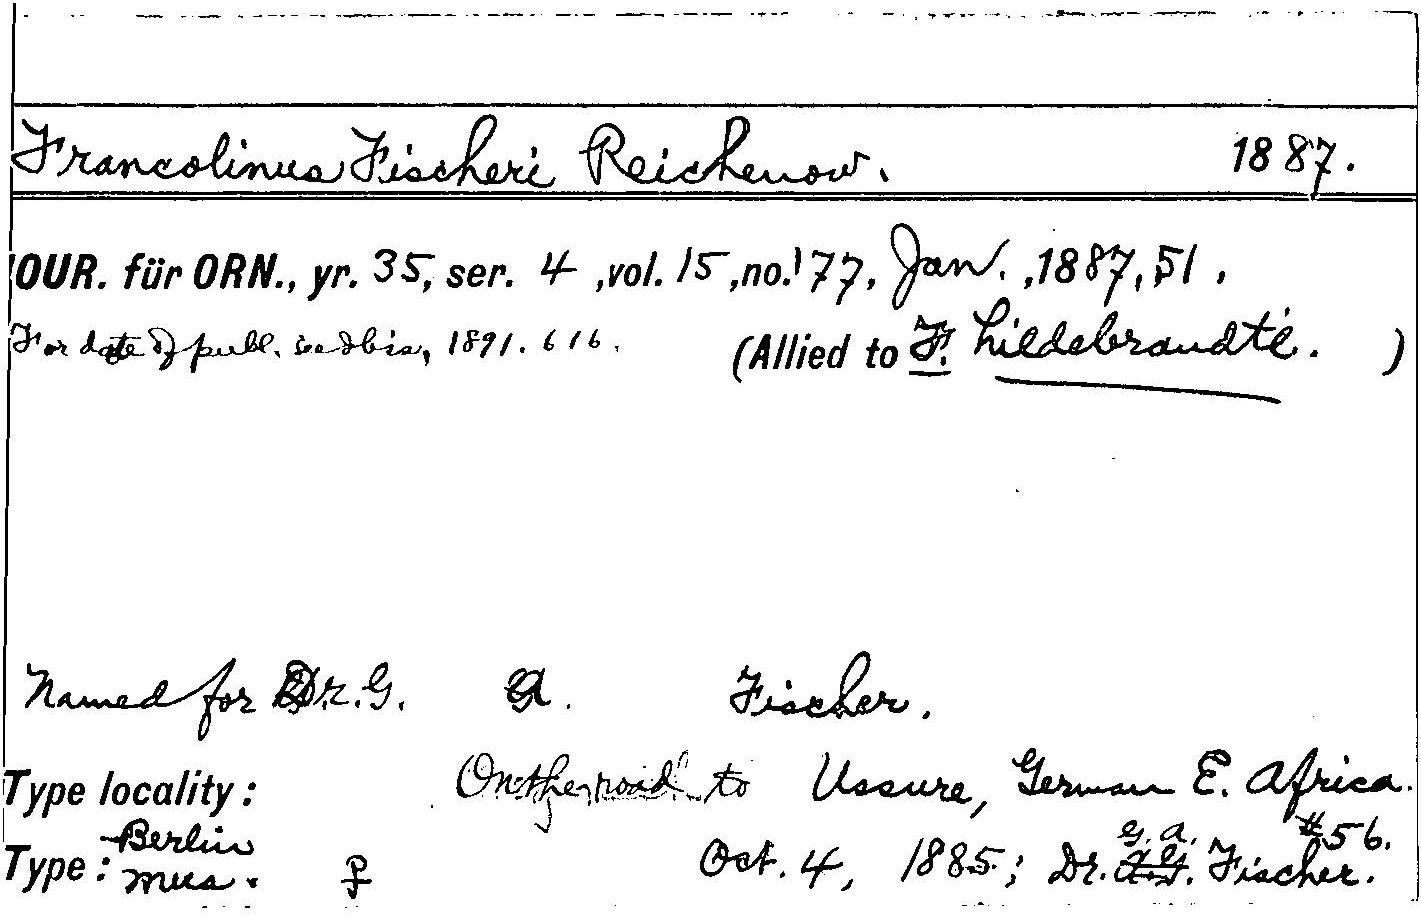 Francolinus Fischeri Reichenow. 1887.
OUR. für ORN., yr. 35, ser. 4 ,vol. 15 ,no. 177, Jan. ,1887, 51 .
For date of publ. see Ibis, 1891. 616. (Allied to F. hildebrandti. )
Named for Dr. G. A. Fischer.
Type locality: On the road to Ussure, German E. Africa.
Berlin G. A. #56.
Type: Mus. ♀ Oct. 4, 1885; Dr. A.G. Fischer.